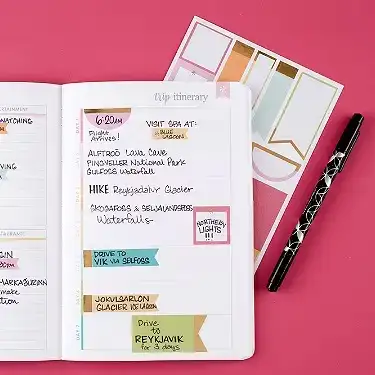 Trip itinerary
6:20AM
Flight
Arrives!
VISIT SPA AT:
BLUE
LAGOON
Lava Cave
PINGVELLER National Park
GULFOSS Waterfall
HIKE Reykjadalur Glacier
& SELJALANDSFOSS
Waterfalls
NORTHERN
LIGHTS
!!!
DRIVE TO
VIK via SELFOSS
JOKULSARLON
GLACIER ICE LAGOON
Drive
to
REYKJAVIK
for 3 days
WATCHING
VING
GIN
make
tion